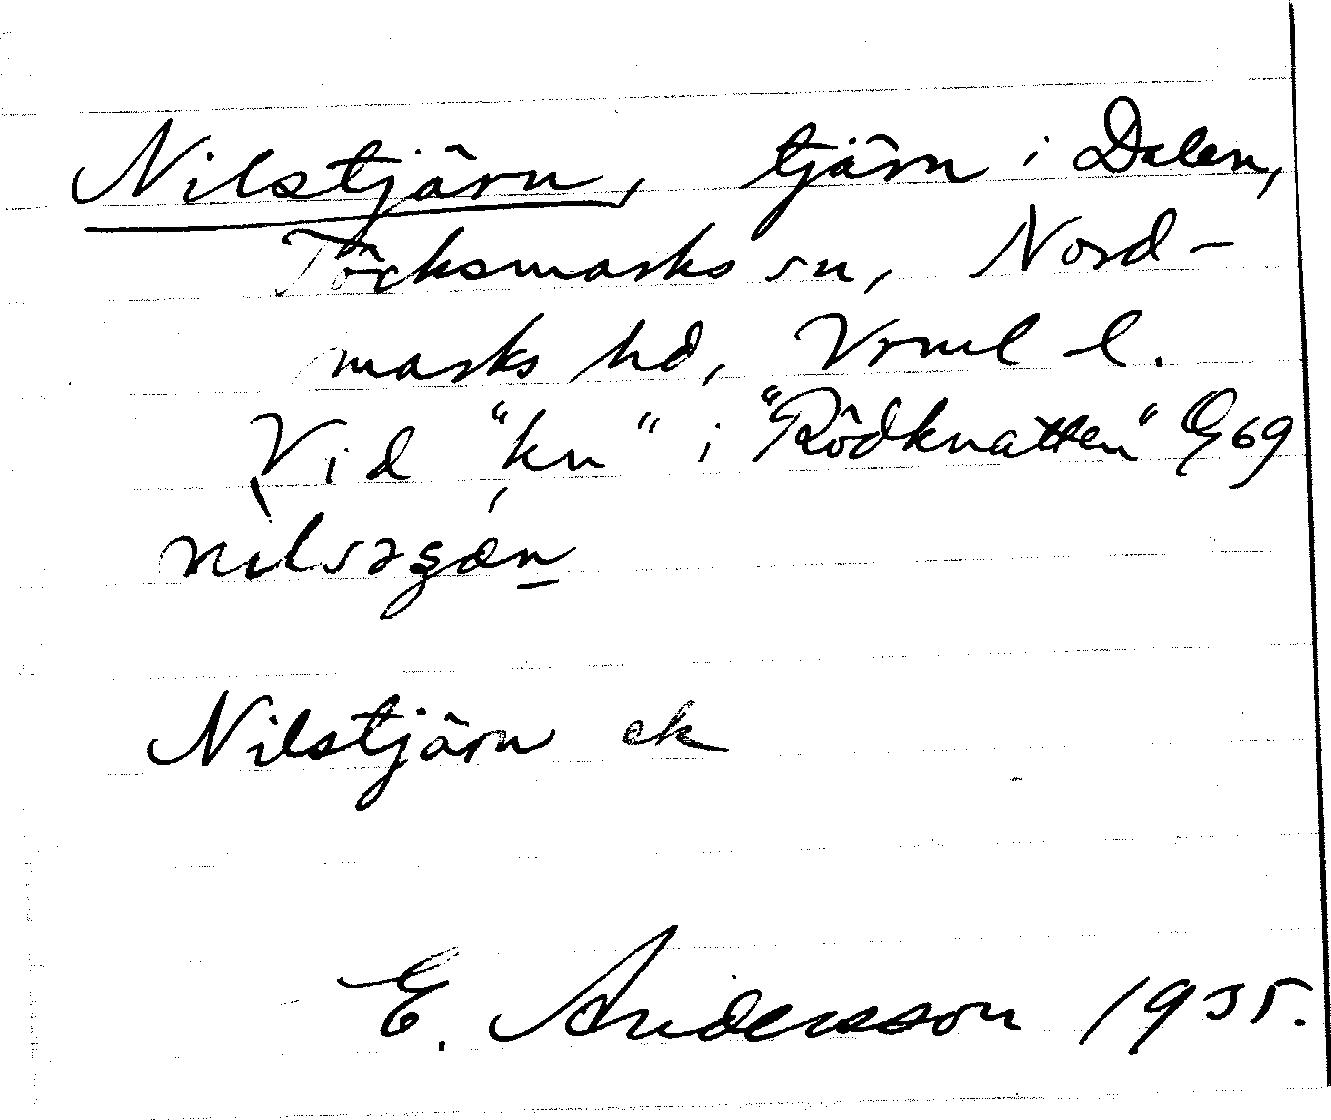 Nilstjärn, tjärn i Dalen,
Töcksmarks sn, Nord-
marks hd, Vrml l.
Vid "kn" i "Rödknatten" G69
Nilstjärn ek
E. Andersson 1935.